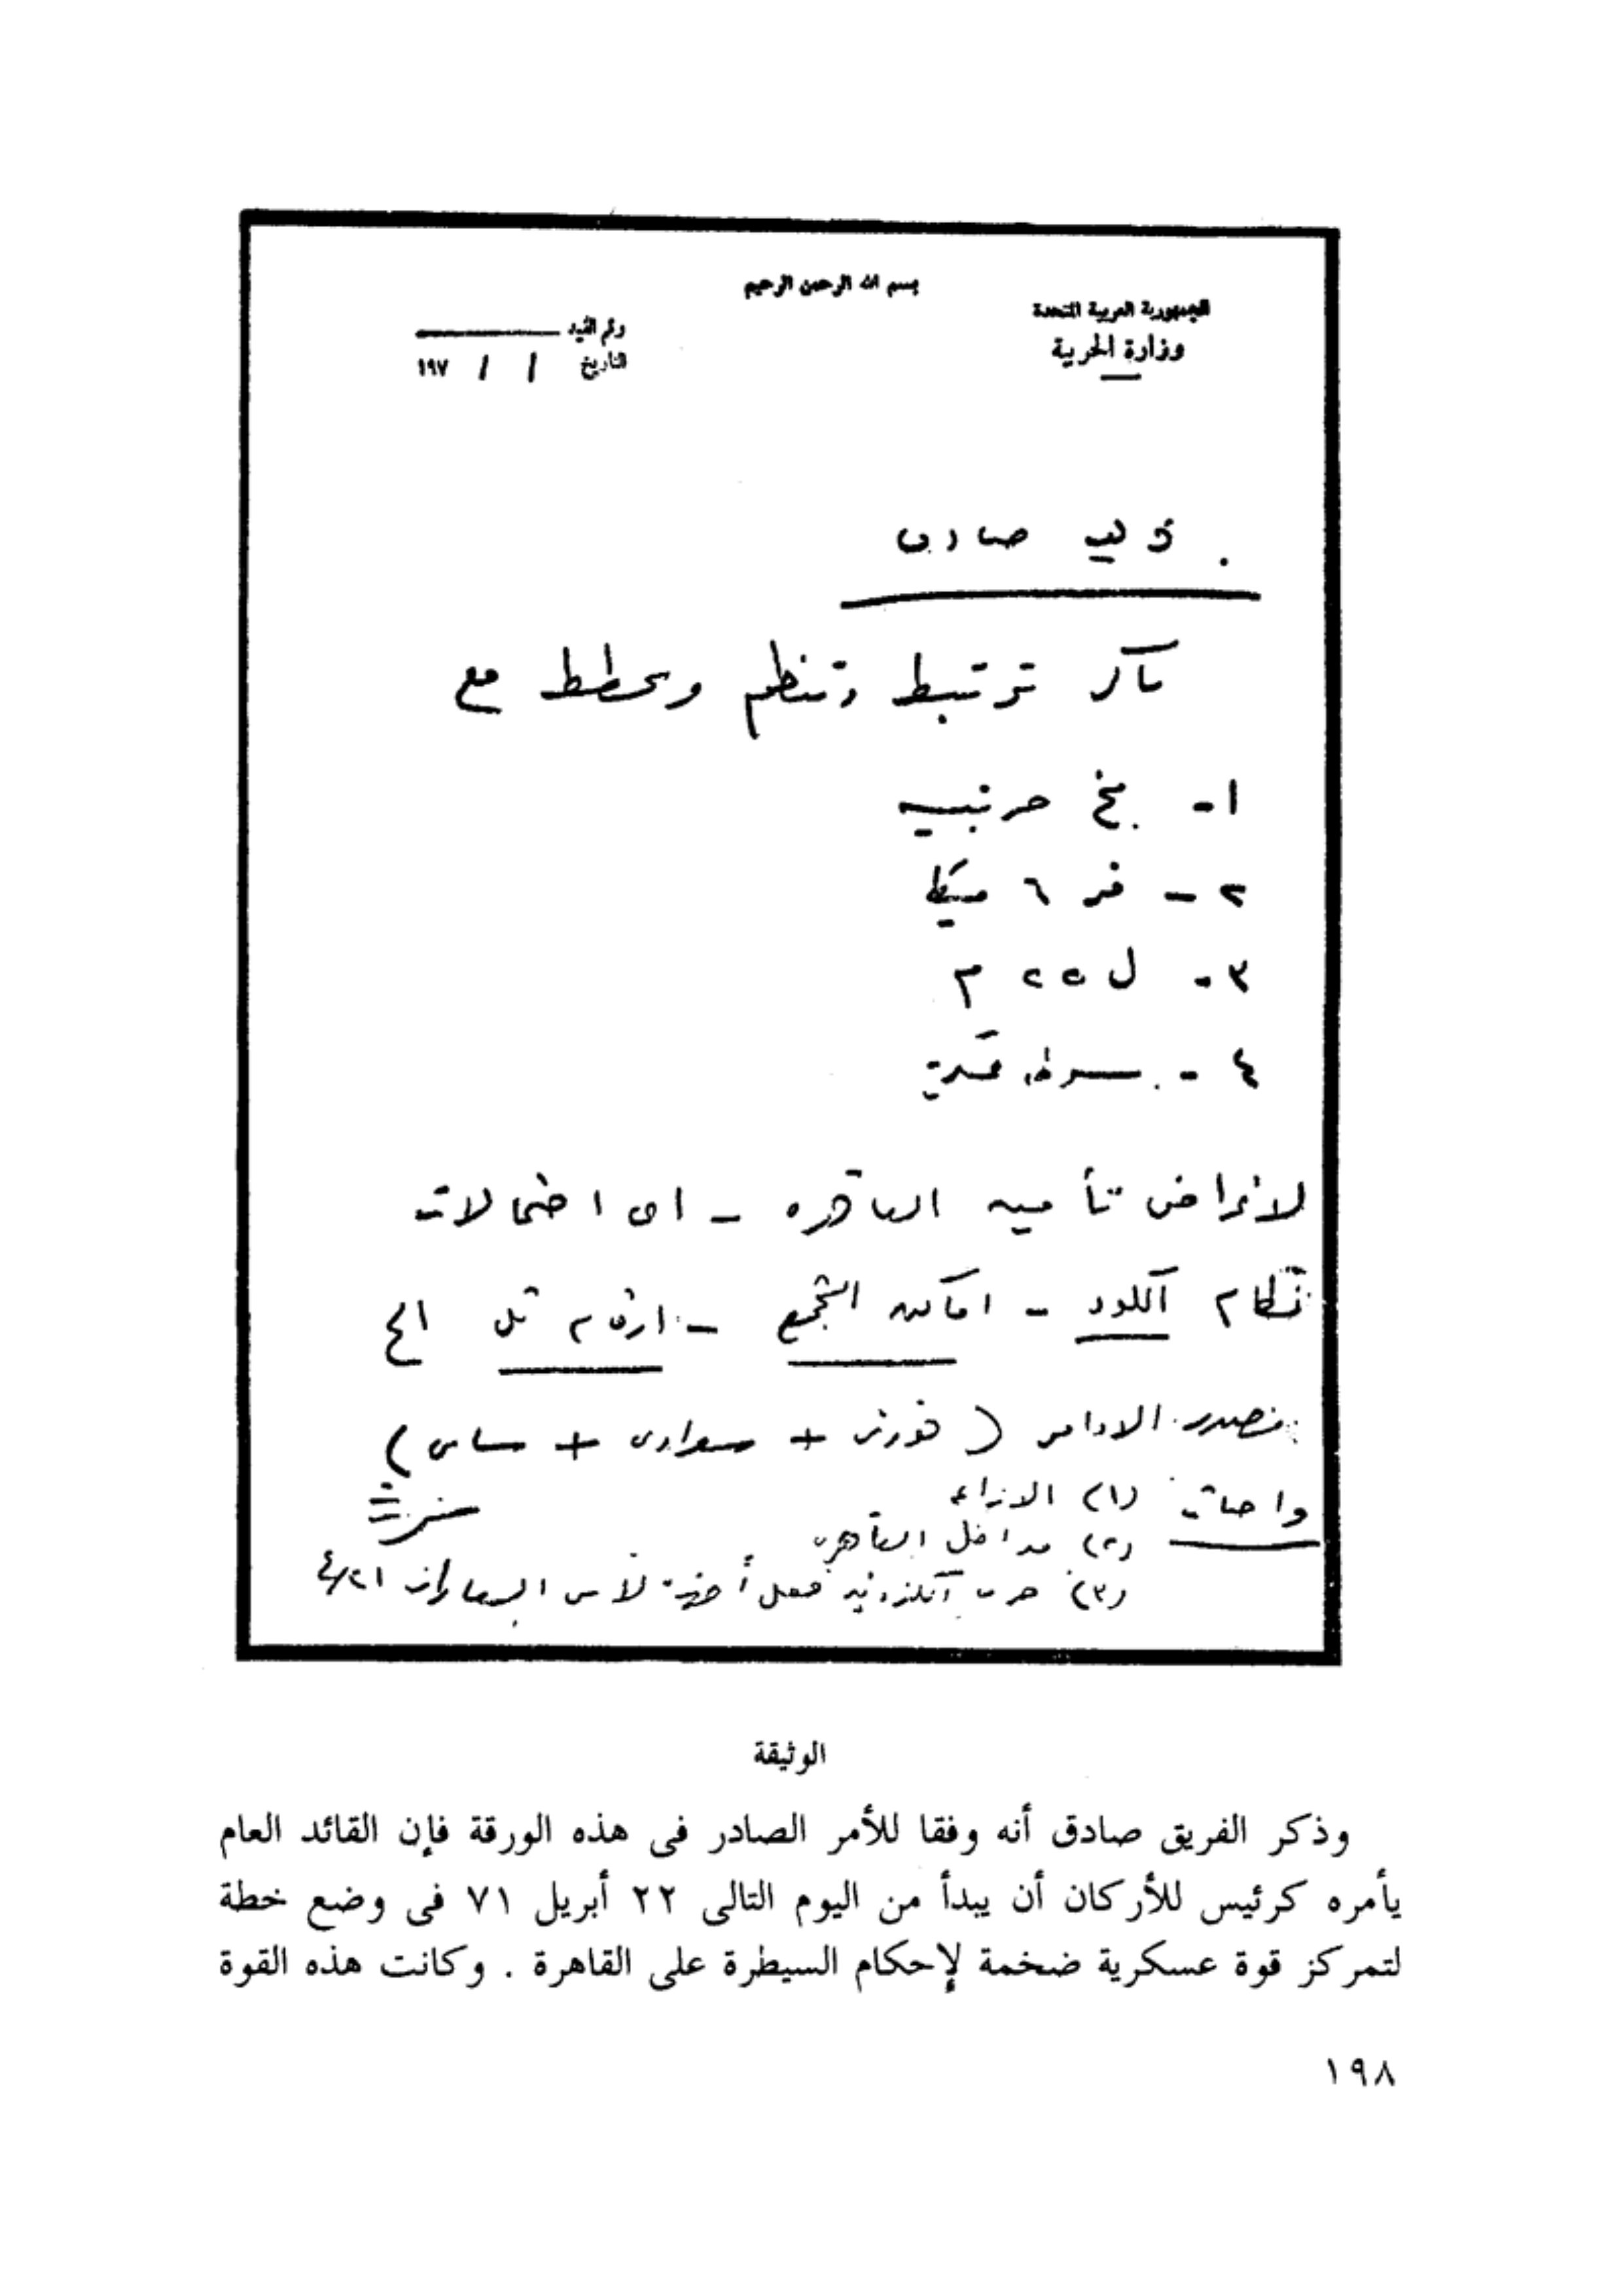 بسم الله الرحمن الرحيم
الجمهورية العربية المتحدة
وزارة الحربية
رقم القيد
التاريخ / / ١٩٧
صادق
باكر ترتبط وتنظم وتخطط مع
١ -
٢ - فر ٦ ميكا
٣ - ل ٢٢ م
٤ -
لاغراض تأمين القاهره - اى احتمالات
نظام الكود - اماكن التجمع - ارقام تل الخ
الاوامر ( فوزى + + سامى )
واجبات (١) الاذاعه
(٢) مداخل القاهره
(٣) ٤/٢١
الوثيقة
وذكر الفريق صادق أنه وفقا للأمر الصادر فى هذه الورقة فإن القائد العام
يأمره كرئيس للأركان أن يبدأ من اليوم التالى ٢٢ أبريل ٧١ فى وضع خطة
لتمركز قوة عسكرية ضخمة لإحكام السيطرة على القاهرة . وكانت هذه القوة
١٩٨